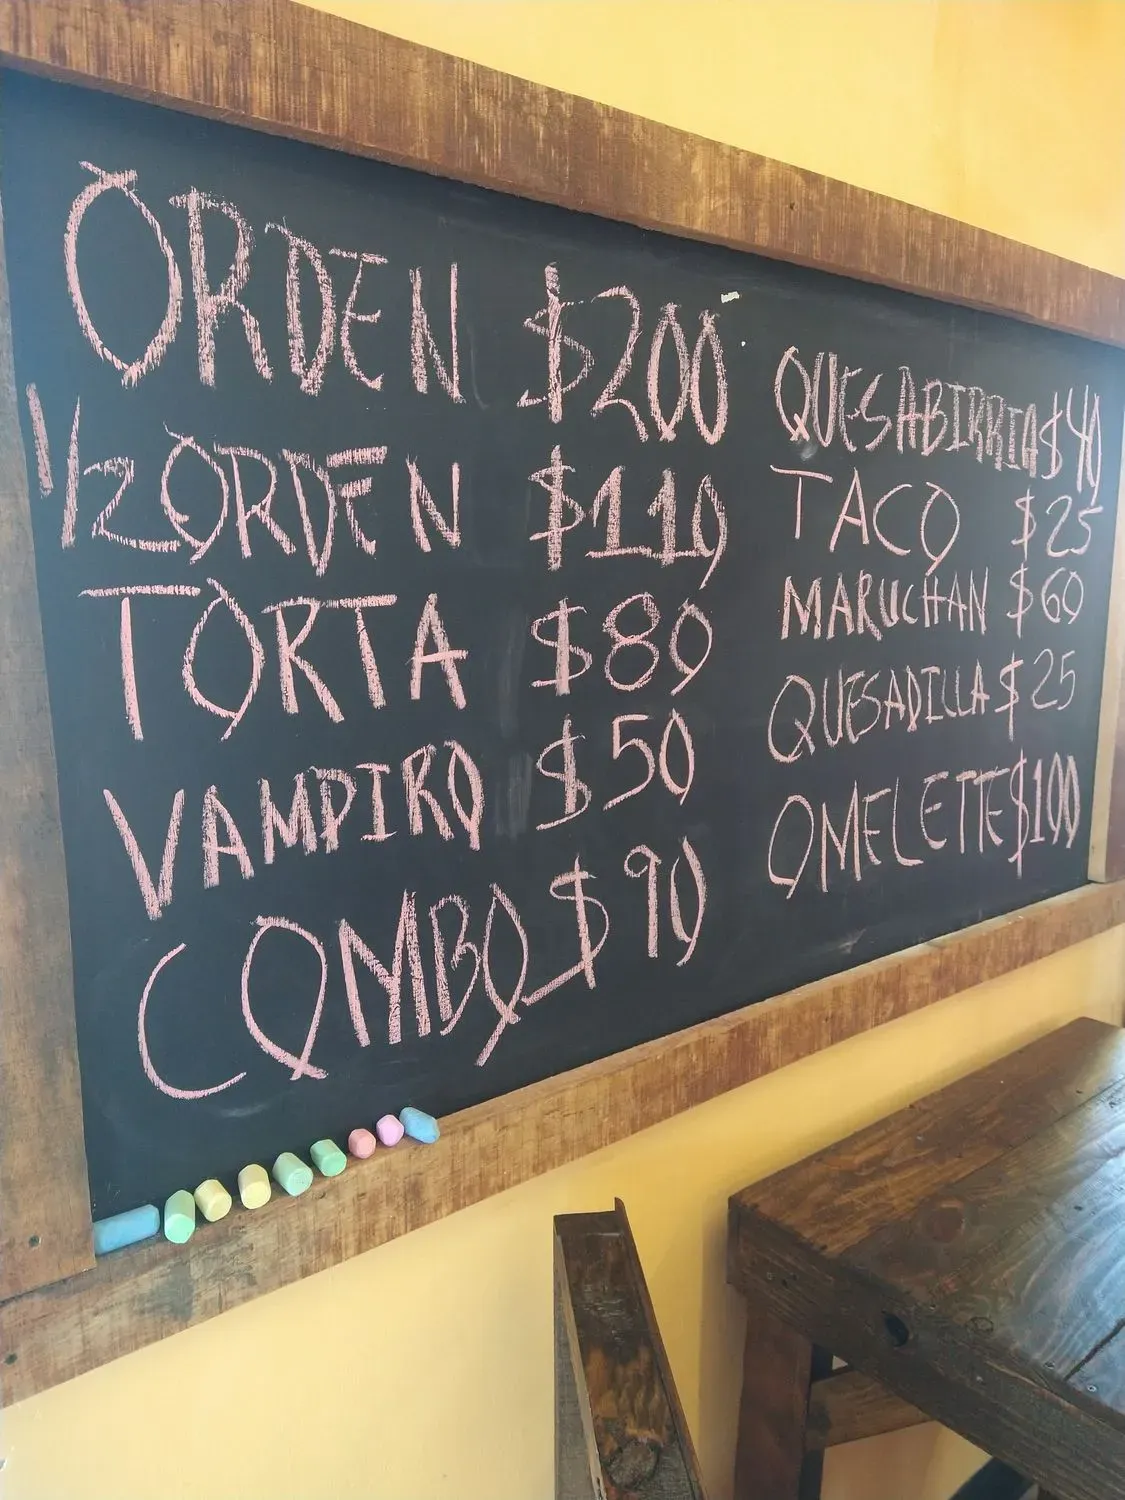 ORDEN $200
1/2 ORDEN $110
TORTA $80
VAMPIRO $50
COMBO $90
QUESABIRRIA $40
TACO $25
MARUCHAN $60
QUESADILLA $25
OMELETTE $100